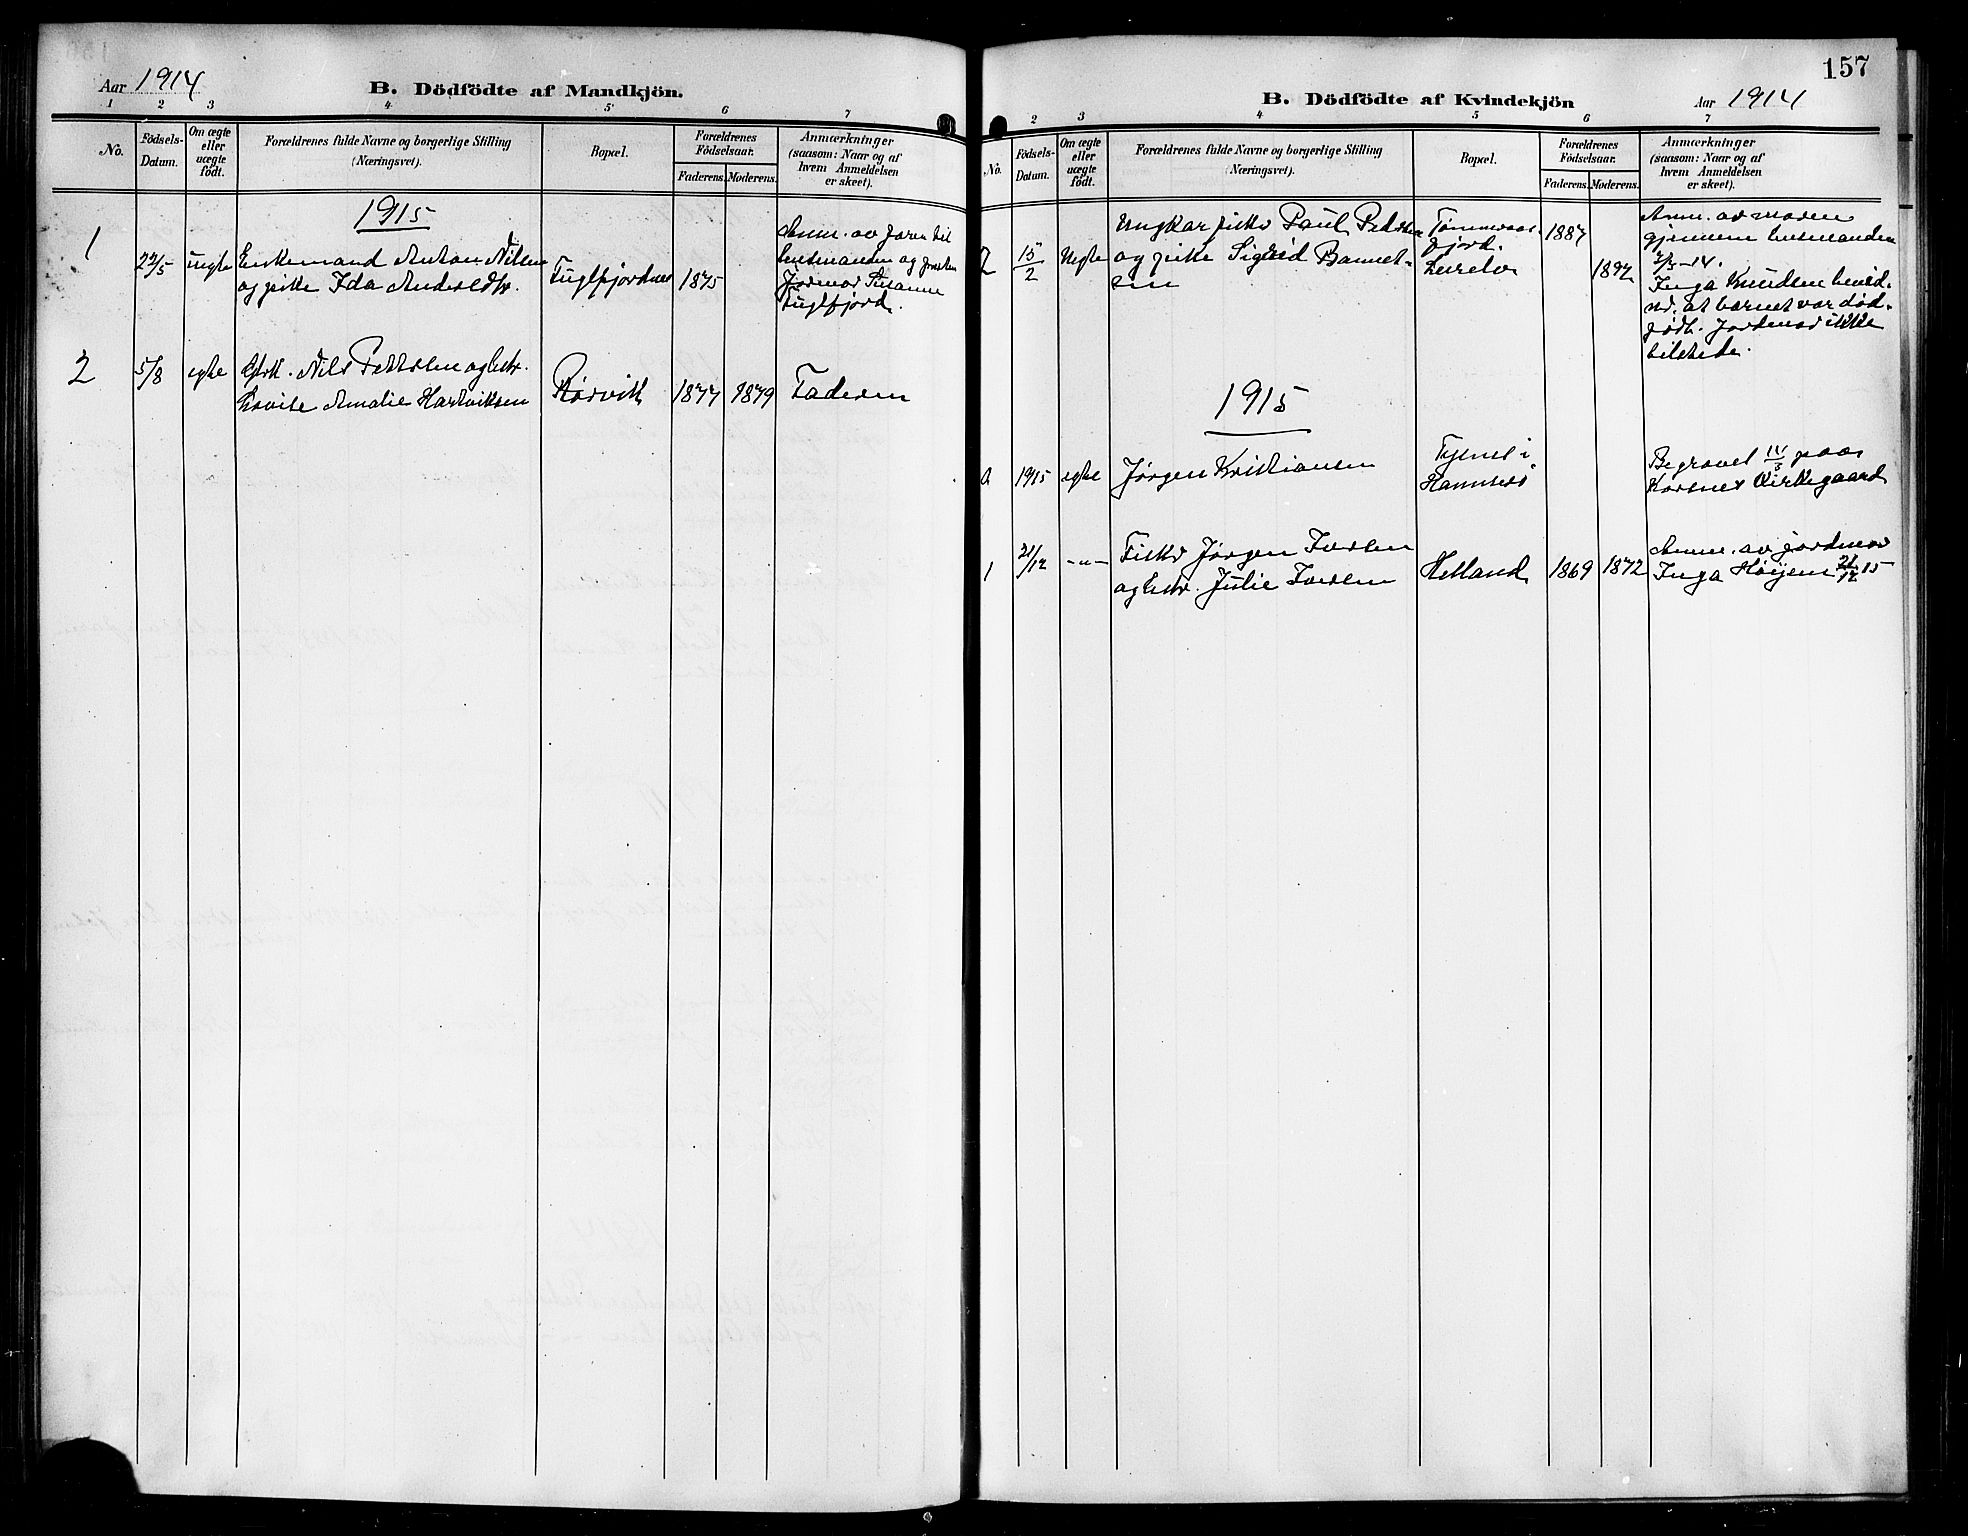 Aar 1914
B. Dödfödte af Mandkjön.
1 2 3 4 5 6 7
No.
Födsels-Datum.
Om ægte eller uægte födt.
Forældrenes fulde Navne og borgerlige Stilling
(Næringsvei).
Bopæl.
Forældrenes Födselsaar.
Faderens. Moderens.
Anmærkninger
(saasom: Naar og af
hvem Anmeldelsen
er skeet).
1915
1 22/5 uegte Enkemand Anton Nilsen
og pike Ida Andersdtr.
Fuglfjordnes 1875
Anm. av faren til
lensmanden og presten
Jordmor Susanne
Fuglfjord.
2 5/8 egte Gbr. Nils Pettersen og hstr.
Lovise Amalie Hartviksen
Rørvik 1877 1879 Faderen
157
B. Dödfödte af Kvindekjön
Aar 1914
2 3 4 5 6 7
No.
Födsels-Datum.
Om ægte eller uægte födt.
Forældrenes fulde Navne og borgerlige Stilling
(Næringsvei).
Bopæl.
Forældrenes Födselsaar.
Faderens. Moderens.
Anmærkninger
(saasom: Naar og af
hvem Anmeldelsen
er skeet).
2 15/2 Uegte Ungkar fisker Paul Pedersen
og pike Sigrid
fjord.
1887
1892
Anm. av moren
gjennem lensmanden
Inga Knudsen bevid-
ner at barnet var død-
født. Jordmor ikke
tilstede.
1915
1915 egte Jørgen Kristiansen
i
Begravet 14/3 paa
Korsnes Kirkegaard
1 21/12 -"- Fisker Jørgen Iversen
og hstr. Julie Iversen
Helland 1869 1872
Anm. av jordmor
Inga Høijen 21/12 15